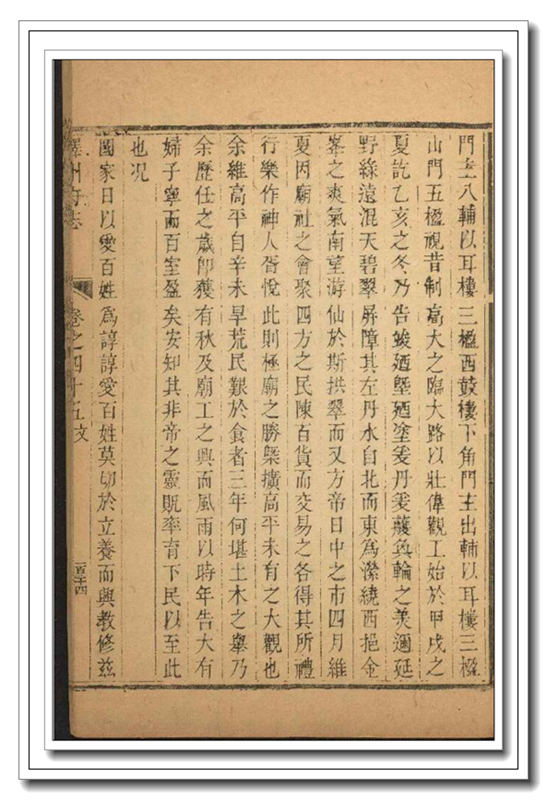 門主八輔以耳樓三楹西鼓樓下角門主出輔以耳樓三楹
山門五楹視昔制高大之臨大路以壯偉觀工始於甲戌之
夏訖乙亥之冬乃告竣廼塈廼塗爰丹爰雘奐輪之美邇延
野綠遠混天碧翠屏障其左丹水自北而東為瀠繞西挹金
峯之爽氣南望游仙於斯拱翠而又方帝日中之市四月維
夏因廟社之會聚四方之民陳百貨而交易之各得其所禮
行樂作神人胥悅此則極廟之勝槩擴高平未有之大觀也
余維高平自辛未旱荒民艱於食者三年何堪土木之舉乃
余歷任之歲即獲有秋及廟工之興而風雨以時年告大有
婦子寧而百室盈矣安知其非帝之靈既率育下民以至此
也况
國家日以愛百姓為諄諄愛百姓莫切於立養而興教修茲
澤州府志 卷之四十五文 一百二十四